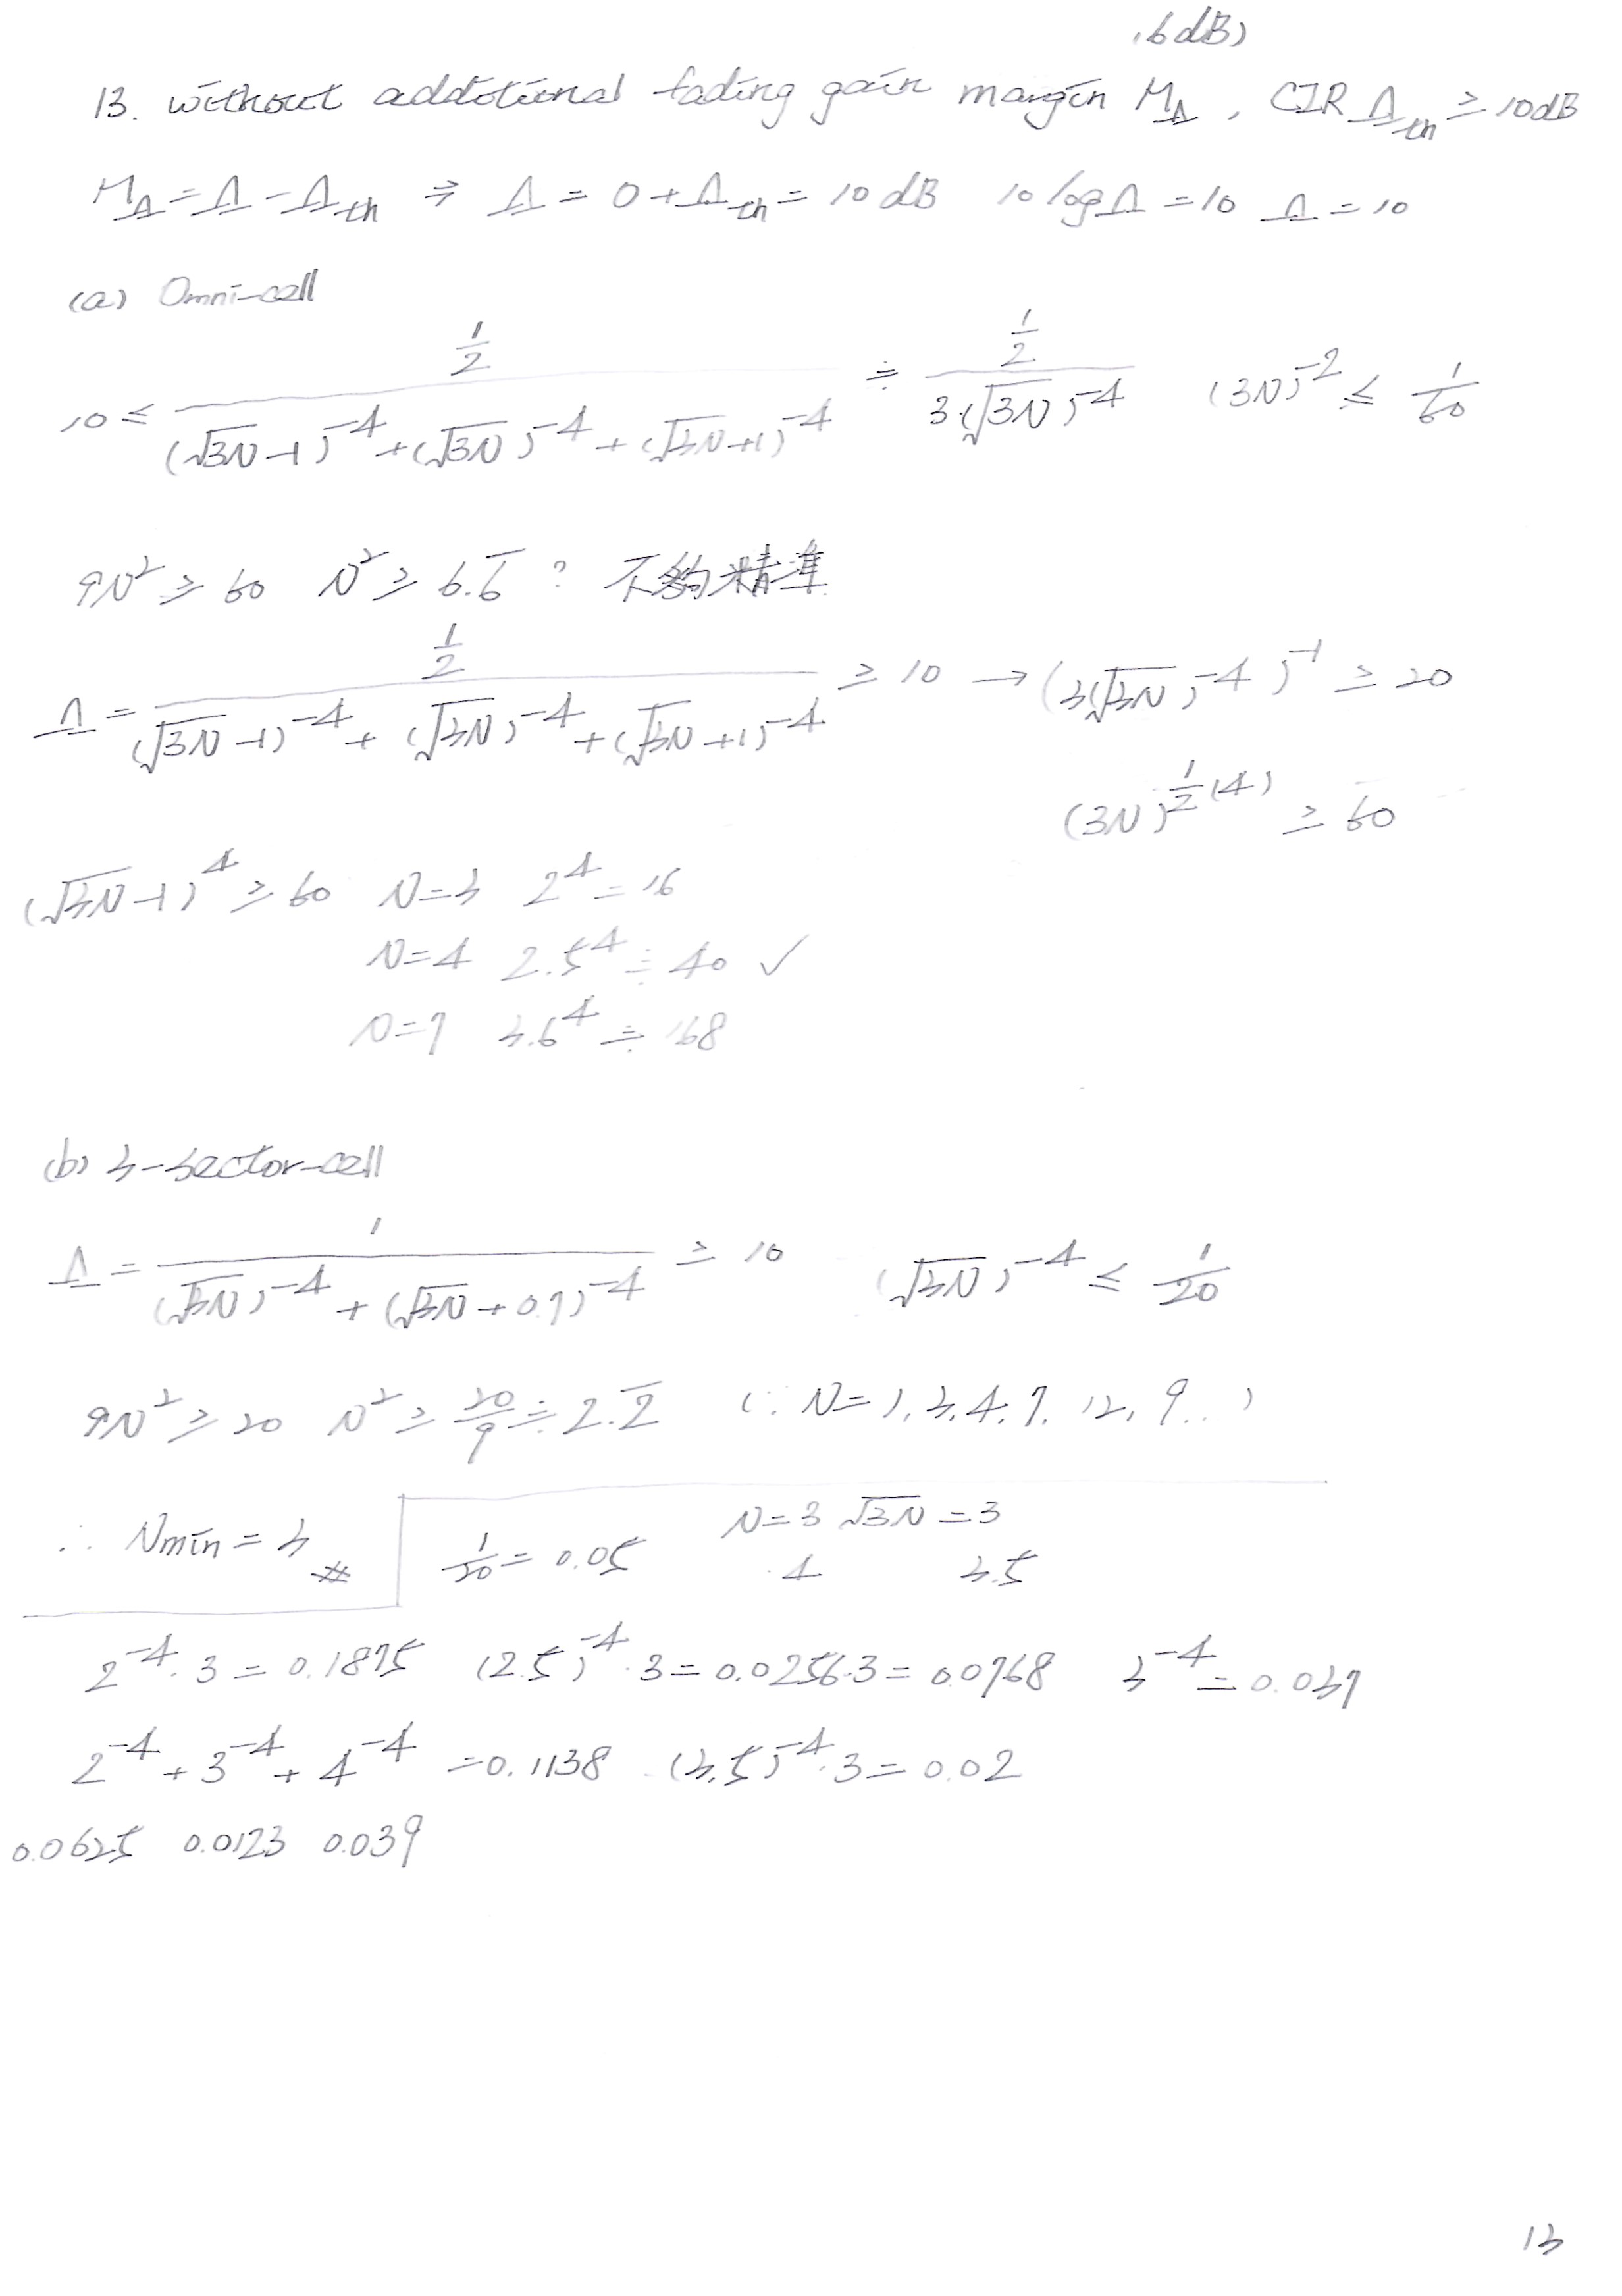 (6dB)
13. without additional fading gain margin M_Λ, CIR Λ_th ≥ 10dB
M_Λ = Λ - Λ_th ⇒ Λ = 0 + Λ_th = 10 dB 10 log Λ = 10 Λ = 10
(a) Omni-cell
10 ≤ (1/2) / ((√3N -1)^-4 + (√3N)^-4 + (√3N +1)^-4) ≒ (1/2) / (3·(√3N)^-4) (3N)^-2 ≤ 1/60
9N² ≥ 60 N² ≥ 6.6̅ ? 不夠精準
Λ = (1/2) / ((√3N -1)^-4 + (√3N)^-4 + (√3N +1)^-4) ≥ 10 → (3(√3N)^-4)^-1 ≥ 20
(3N)^(1/2 (4)) ≥ 60
(√3N -1)^4 ≥ 60 N=3 2^4 = 16
N=4 2.5^4 ≒ 40 ✓
N=7 3.6^4 ≒ 168
(b) 3-sector-cell
Λ = 1 / ((√3N)^-4 + (√3N + 0.7)^-4) ≥ 10 (√3N)^-4 ≤ 1/20
9N² ≥ 20 N² ≥ 20/9 ≒ 2.2̅ (∵ N = 1, 3, 4, 7, 12, 9..)
∴ Nmin = 3 # 1/20 = 0.05 N=3 √3N = 3
4 3.5
2^-4 · 3 = 0.1875 (2.5)^-4 · 3 = 0.0256·3 = 0.0768 3^-4 = 0.037
2^-4 + 3^-4 + 4^-4 = 0.1138 (3.5)^-4 · 3 = 0.02
0.0625 0.0123 0.039
13